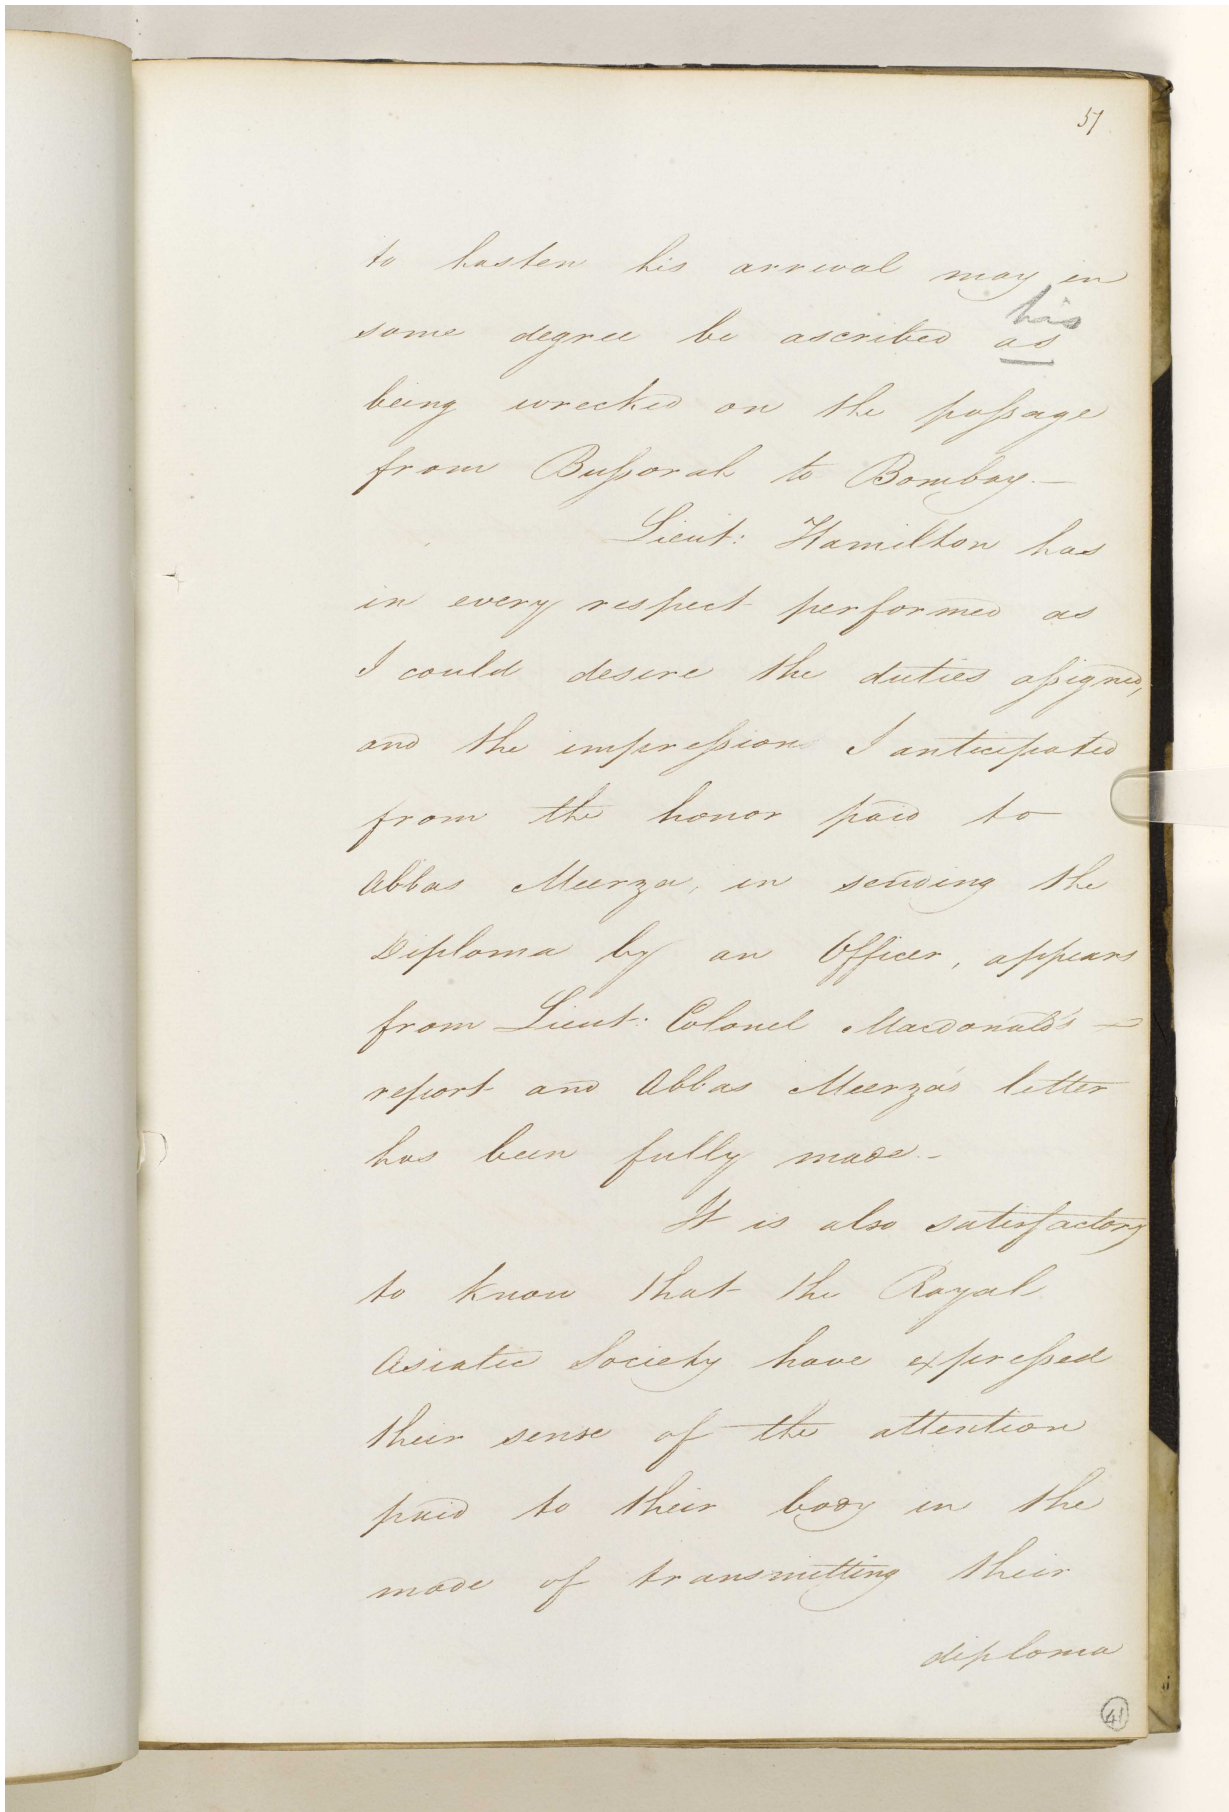 57
to hasten his arrival may in
his
some degree be ascribed as
being wrecked on the paſsage
from Buſsorah to Bombay.—
Lieut: Hamilton has
in every respect performed as
I could desire the duties aſsigned,
and the impreſsion I anticipated
from the honor paid to
Abbas Meerza, in sending the
Diploma by an Officer, appears
from Lieut: Colonel Macdonald's —
report and Abbas Meerza's letter
has been fully made.—
It is also satisfactory
to know that the Royal
Asiatic Society have expreſsed
their sense of the attention
paid to their body in the
mode of transmitting their
diploma
41